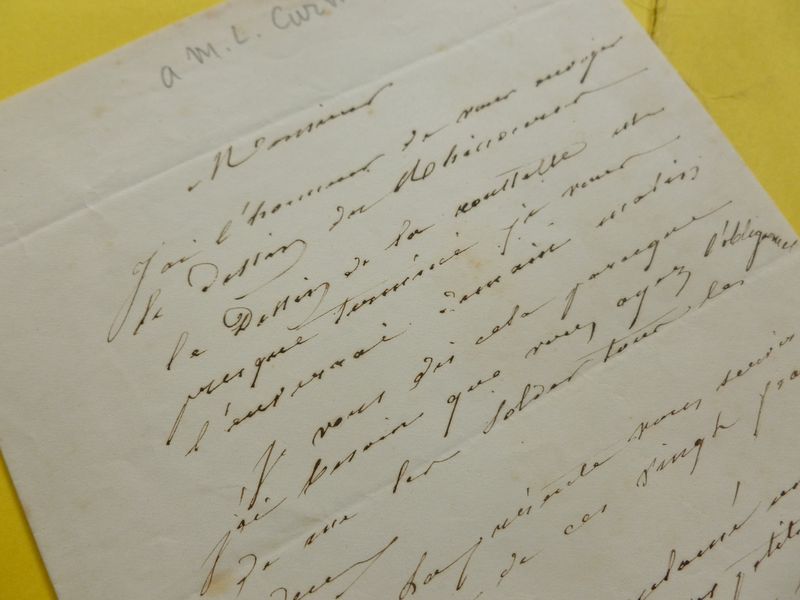 a M. L. Cur
Monsieur
J'ai l'honneur de vous envoyer
le Dessin du Rhinoceros
le Dessin de la
presque terminé je vous
l'enverrai demain matin
Je vous dis cela parceque
j'ai besoin que vous ayez l'obligeance
de me les Solder tous les
deux la présente vous
de ces vingt fra